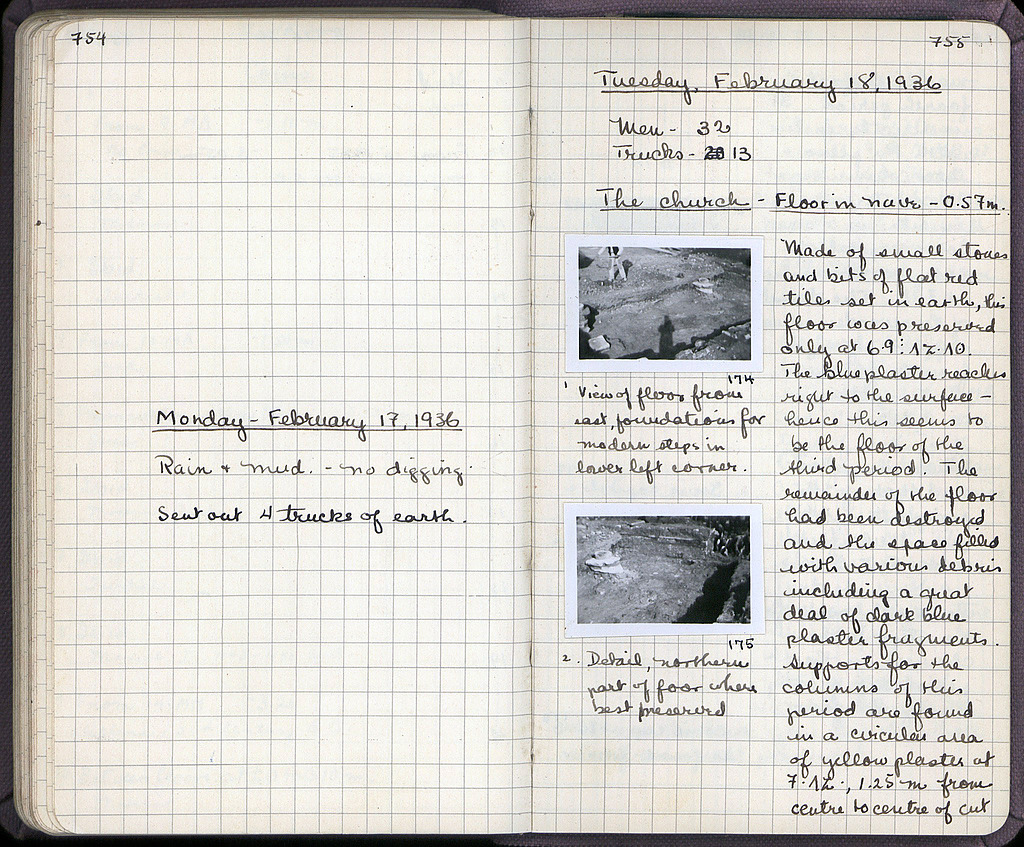 754
Monday - February 17, 1936
Rain + mud. - no digging.
Sent out 4 trucks of earth.
755
Tuesday, February 18, 1936
Men - 32
Trucks - 13
The church - Floor in nave - 0.57m.
174
1 View of floor from
east, foundations for
modern steps in
lower left corner.
175
2. Detail, northern
part of foor where
best preserved
Made of small stones
and bits of flat red
tiles set in earth, this
floor was preserved
only at 6.9 : ΙΖ.10.
The blue plaster reaches
right to the surface -
hence this seems to
be the floor of the
third period. The
remainder of the floor
had been destroyed
and the space filled
with various debris
including a great
deal of dark blue
plaster fragments.
Supports for the
columns of this
period are found
in a circular area
of yellow plaster at
7. ΙΖ., 1.25 m from
centre to centre of cut